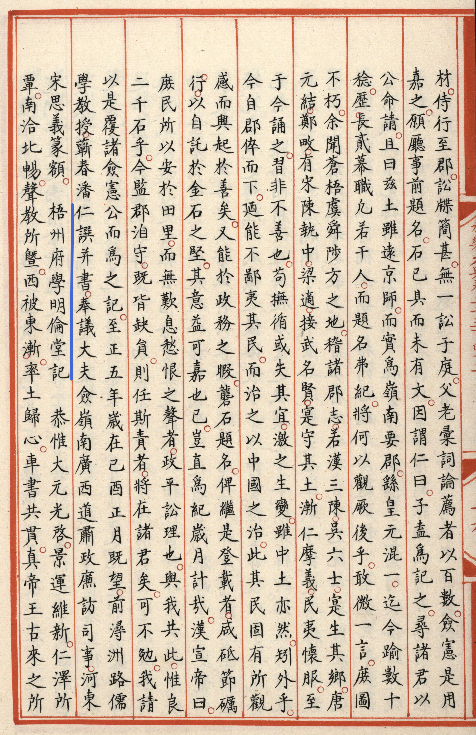 材侍行至郡訟牒簡甚無一訟于庭父老彙詞論薦者以百數僉憲是用
嘉之願廳事前題名石已具而未有文因謂仁曰子盍為記之尋諸君以
公命請且曰茲土雖遠京師而實為嶺南要郡繇皇元混一迄今踰數十
稔歷長貳幕職凡若干人而題名弗紀將何以觀厥後乎敢微一言庶圖
不朽余聞蒼梧虞舜陟方之地稽諸郡志若漢三陳吳六士寔生其鄉唐
元結鄭畋有宋陳執中梁適接武名賢寔守其土漸仁摩義民夷懷服至
于今誦之習非不善也苟撫循或失其宜激之生變雖中土亦然矧外乎
今自郡倅而下廼能不鄙夷其民而治之以中國之治此其民固有所觀
感而興起於善矣又能於政務之暇礱石題名俾繼是登載者咸砥節礪
行以自託於金石之堅其意益可嘉也已豈直為紀歲月計哉漢宣帝曰
庶民所以安於田里而無歎息愁恨之聲者政平訟理也與我共此惟良
二千石乎今監郡洎守既皆缺員則任斯責者將在諸君矣可不勉我請
以是覆諸僉憲公而為之記至正五年歲在己酉正月既望前潯洲路儒
學教授蘄春潘仁譔并書奉議大夫僉嶺南廣西道肅政廉訪司事河東
宋思義篆額 梧州府學明倫堂記 恭惟大元光啓景運維新仁澤所
覃南洽北暢聲教所暨西被東漸率土歸心車書共貫真帝王古來之所